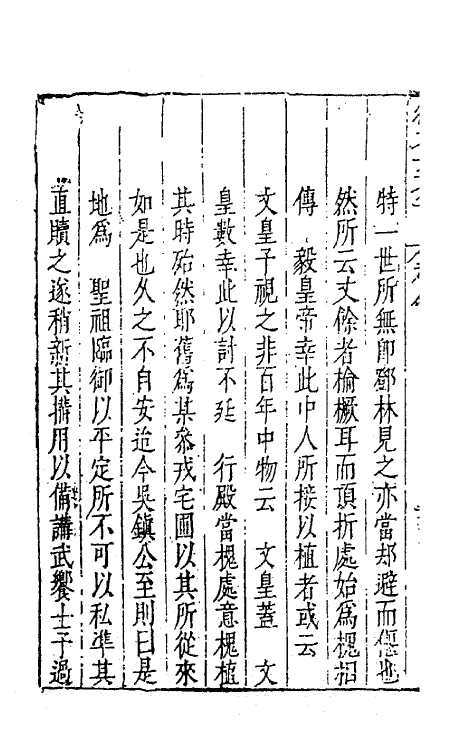 特一世所無卽鄧林見之亦當却避而偃也
然所云丈餘者榆橛耳而頂折處始爲槐招
傳　毅皇帝幸此中人所接以植者或云
文皇子視之非百年中物云　文皇蓋　文
皇數幸此以討不延　行殿當槐處意槐植
其時殆然耶舊爲某叅戎宅圃以其所從來
如是也久之不自安迨今吳鎮公至則曰是
地爲　聖祖臨御以平定所不可以私準其
直贖之遂稍新其搆用以備講武饗士子過